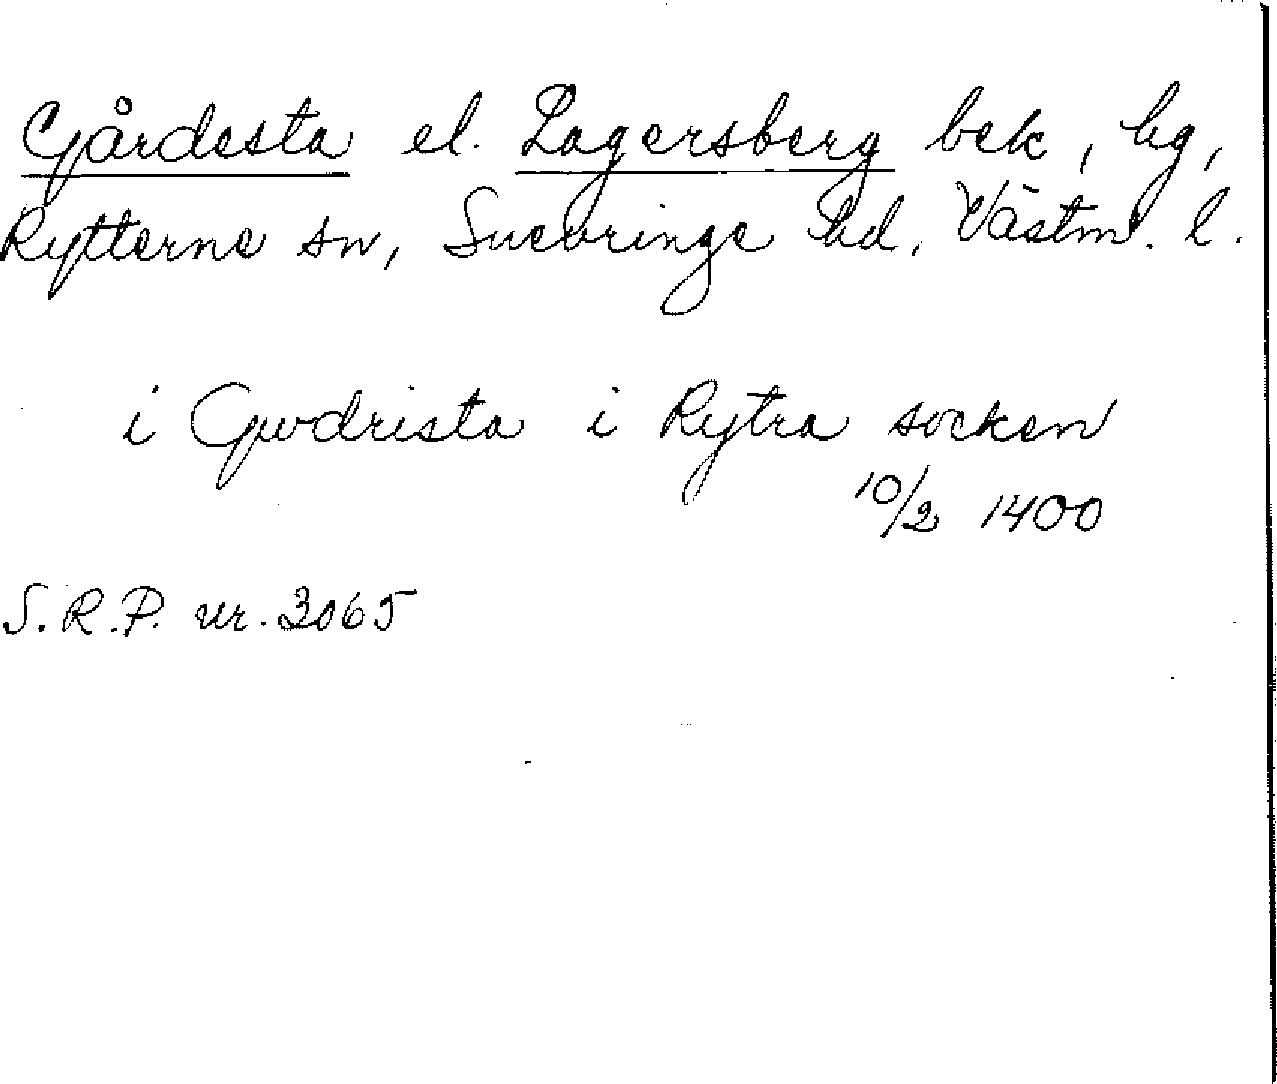 Gårdesta el. Lagersberg bek, hg,
Rytterne sn, Snevringe hd. Västm. l.
i Gwdrista i Rytra socken
10/2 1400
S.R.P. nr. 3065